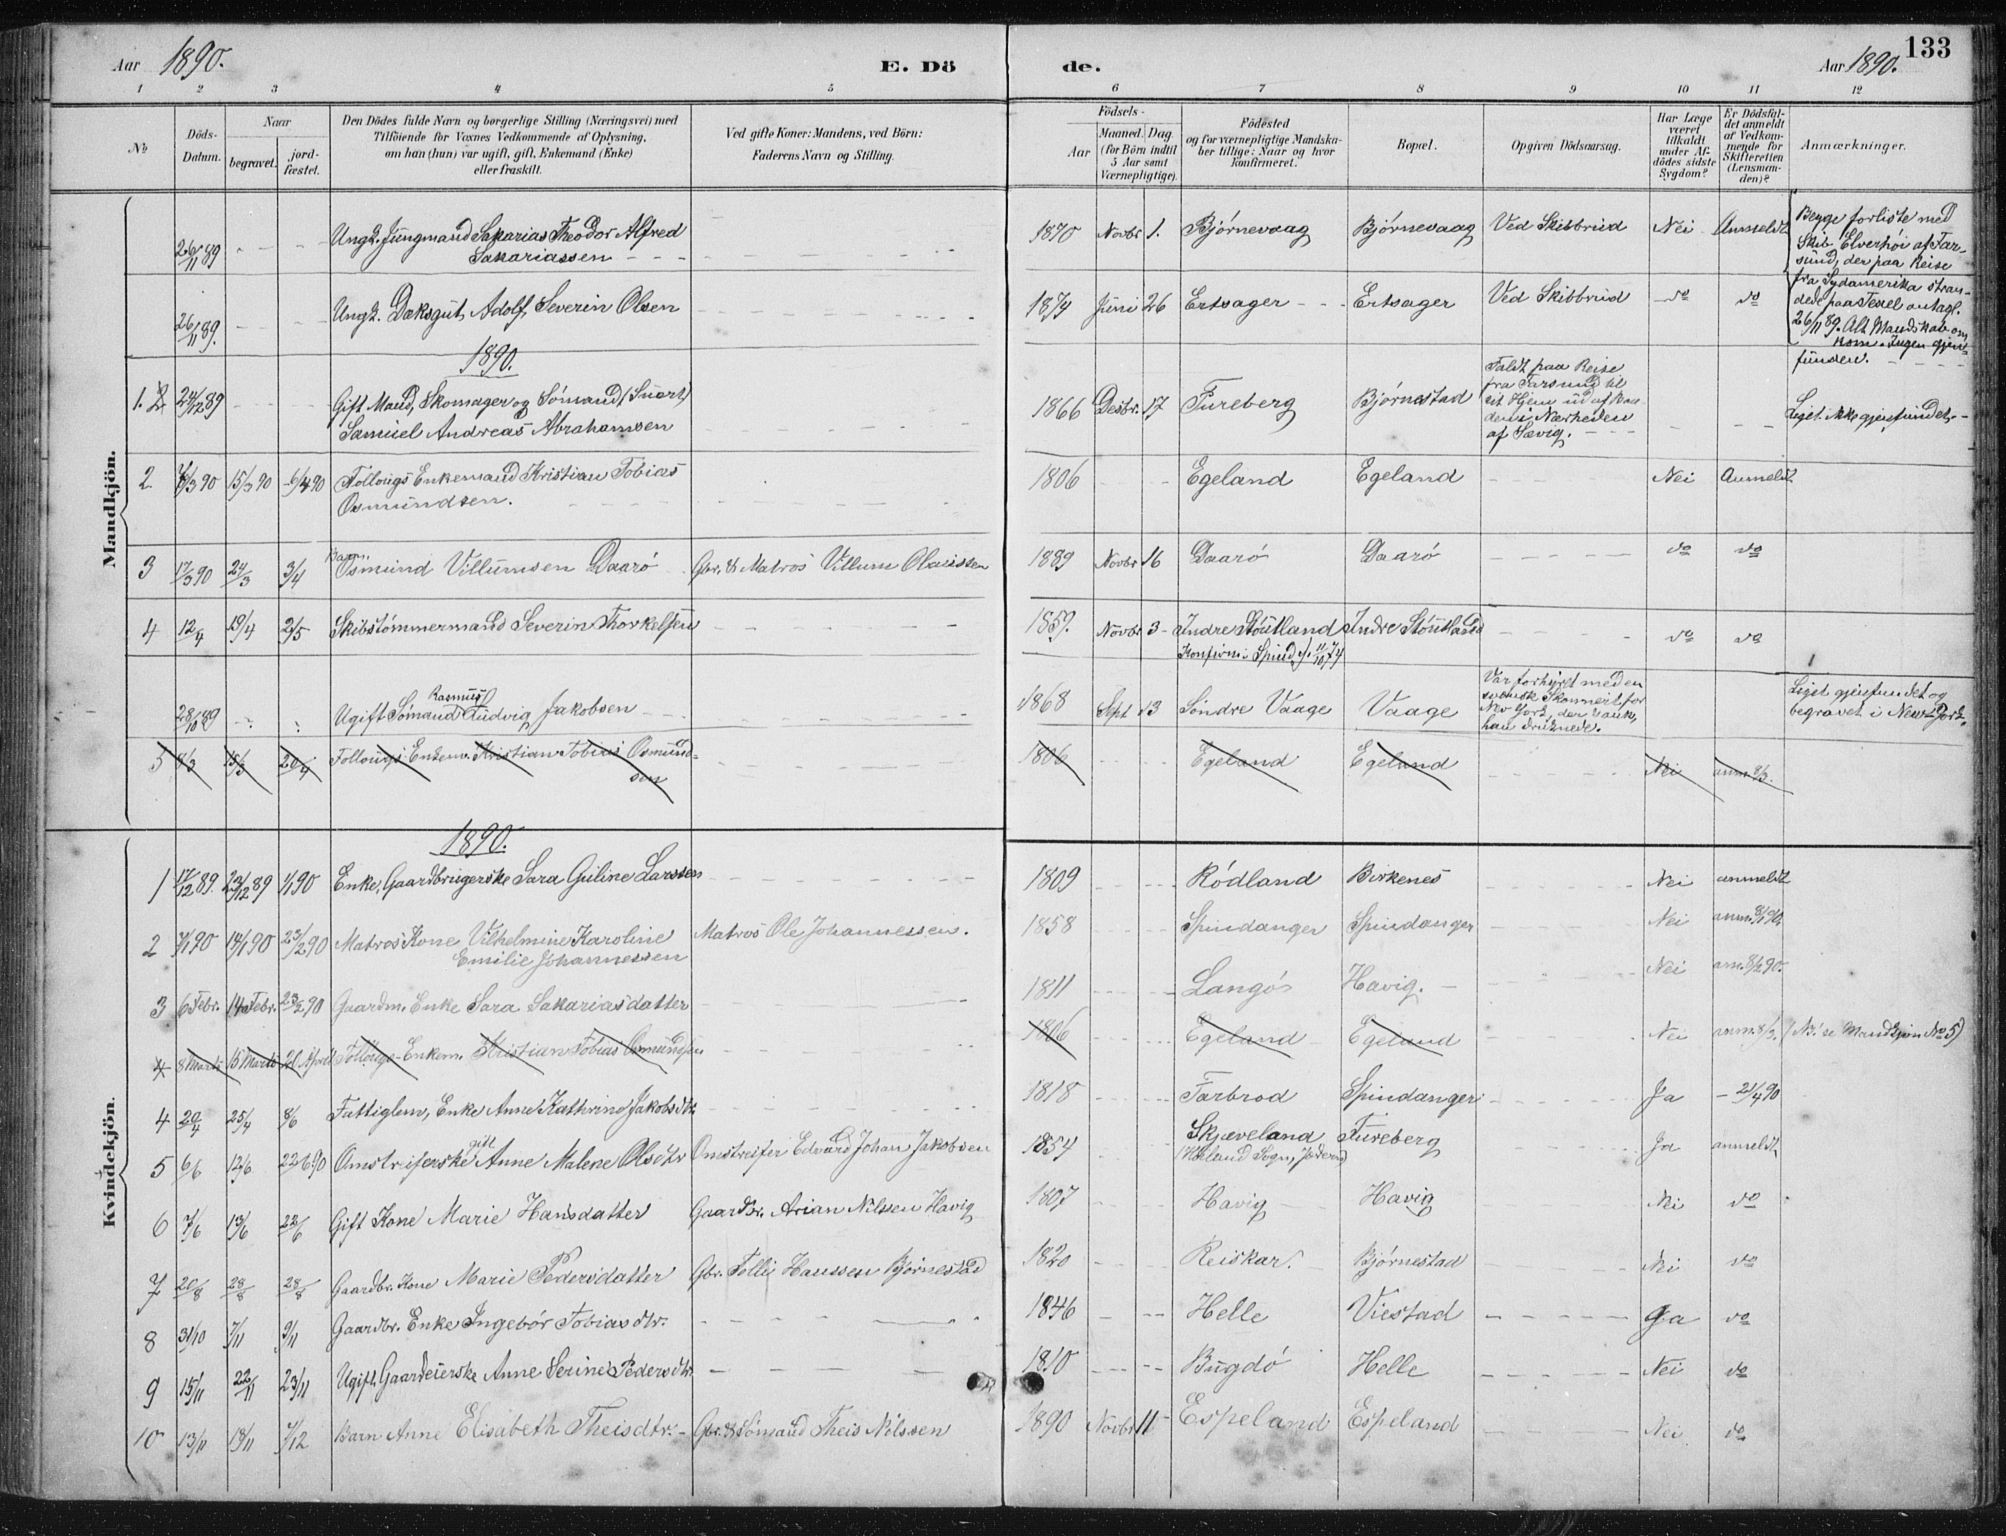 Aar 1890.
E. Döde.
Aar 1890.
133
1 2 3 4 5 6 7 8 9 10 11 12
No
Döds-Datum.
Naar
begravet.
jordfæstet.
Den Dödes fulde Navn og borgerlige Stilling (Næringsvei) med
Tilföiende for Voxnes Vedkommende af Oplysning,
om han (hun) var ugift, gift, Enkemand (Enke)
eller fraskilt.
Ved gifte Koner: Mandens, ved Börn:
Faderens Navn og Stilling.
Födsels-
Aar
Maaned. Dag.
(for Börn indtil
5 Aar samt
Værnepligtige).
Födested
og for værnepligtige Mandskaber tillige: Naar og hvor
konfirmeret.
Bopæl.
Opgiven Dödsaarsag.
Har Læge
været
tilkaldt
under Afdödes sidste
Sygdom?
Er Dödsfaldet anmeldt
af Vedkommende for
Skifteretten
(Lensmanden)?
Anmærkninger.
Mandkjön.
26/11 89 Ungk. Jungmand Sakarias Theodor Alfred
Sakariassen
1870 Novbr. 1. Bjørnevaag Bjørnevaag Ved Skibbrud Nei Anmeldt
Begge forliste med
Skib Elverhöi af Farsund, der paa Reise
fra Sydamerika strandede paa Texel antagl.
26/11 89. Alt Mandskab omkom. Ingen gjenfunden.
26/11 89. Ungk. Dæksgut, Adolf Severin Olsen
1874 Juni 26 Ertsager Ertsager Ved Skibbrud do do
1890.
1. 24/12 89 Gift Mand, Skomager og Sömand (Snart)
Samuel Andreas Abrahamsen
1866 Desbr. 17 Fureberg Bjørnestad
Faldt paa Reise
fra Farsund til
sit Hjem ud af Baaden i Nærheden
af Sævig.
Liget ikke gjenfundet.
2 7/3 90 15/3 90 6/4 90 Föllougs Enkemand Kristian Tobias
Osmundsen.
1806 Egeland Egeland Nei Anmeldt
3 17/3 90 24/3 3/4 Barn Osmund Villumsen Daarö Gbr. & Matros Villum Olaussen
1889 Novbr 16 Daarö Daarö do do
4 12/4 19/4 2/5 Skibstömmermand Severin Thorkelsen
1859. Novbr 3 Indre Stoutland Indre Stoutland do do
Konfirm. i Spind 11/10 74
28/10 89 Ugift Sömand Rasmus Ludvig Jakobsen
1868 Sept 13 Söndre Vaage Vaage
Var forhyret med en
svensk Skonnert for
New York, der sank,
han druknede.
Liget gjenfundet og
begravet i New-York.
5 8/3 15/3 20/4 Follougs Enkem. Kristian Tobias Osmundsen
1806 Egeland Egeland Nei anm. 8/3.
Kvindekjön.
1890.
1 17/12 89. 23/12 89 1/1 90 Enke, Gaardbrugerske Sara Guline Larssen
1809 Rödland Birkenes Nei anmeldt
2 7/1 90 14/1 90 23/2 90 Matros Kone Vilhelmine Karoline
Emilie Johannessen
Matros Ole Johannessen.
1858 Spindanger Spindanger Nei anm. 8/1 90
3 6 Febr. 14 Febr. 23/2 90 Gaardm. Enke Sara Sakariasdatter
1811 Langös Havig. Nei anm. 8/2 90.
4 8 Marts 15 Marts 20 April Follougs-Enkem. Kristian Tobias Osmundsen
1806 Egeland Egeland Nei anm. 8/3. (NB. se Mandkjön No 5)
4 20/4 25/4 8/6 Fattiglem, Enke Anne Kathrine Jakobsdtr.
1818 Farbrod Spindanger Ja - 21/4 90
5 6/6 12/6 22/6 90 Omstreiferske gift Anne Malene Olsdtr Omstreifer Edvard Johan Jakobsen
1854 Skjæveland Fureberg Ja anmeldt
(Höiland Sogn, Jæderen)
6 7/6 13/6 22/6 Gift Kone Marie Hansdatter Gaardbr. Arian Nilssen Havig
1807 Havig Havig Nei do
7 20/8 28/8 28/8 Gaardbr. Kone Marie Pedersdatter Gbr. Tollis Hanssen Bjørnestad
1820 Reiskar. Bjørnestad Nei do
8 31/10 7/11 9/11 Gaardbr. Enke Ingebör Tobiasdtr.
1846 Helle Viestad Ja do
9 15/11 22/11 23/11 Ugift Gaardeierske Anne Serine Pedersdtr.
1810 Bugdö Helle Nei do
10 13/11 18/11 7/12 Barn Anne Elisabeth Theisdtr. Gbr. & Sömand Theis Nilssen
1890 Novbr 11 Espeland Espeland Nei do